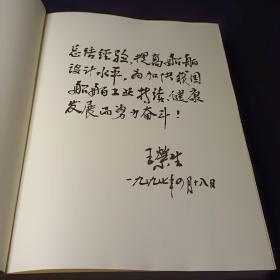 总结经验，提高船舶
设计水平，为加快我国
船舶工业持续、健康
发展而努力奋斗！
王荣生
一九九七年四月十八日